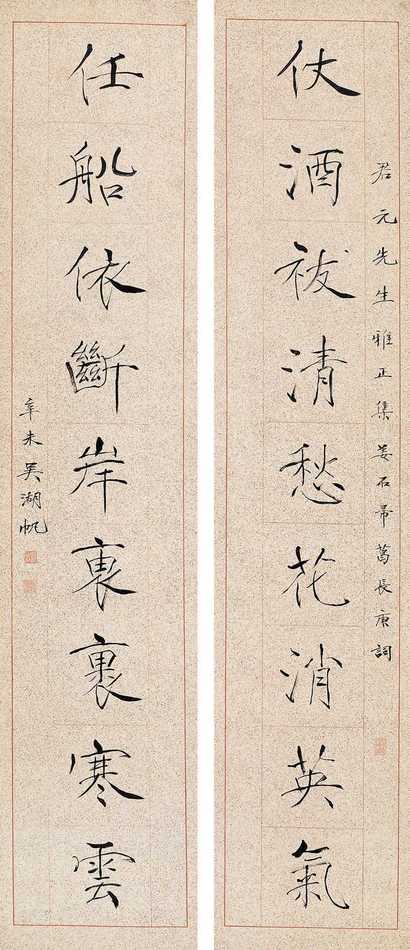 君元先生雅正集姜石帚葛長庚詞
仗酒祓清愁花消英氣
任船依斷岸裏裹寒雲
辛未吳湖帆